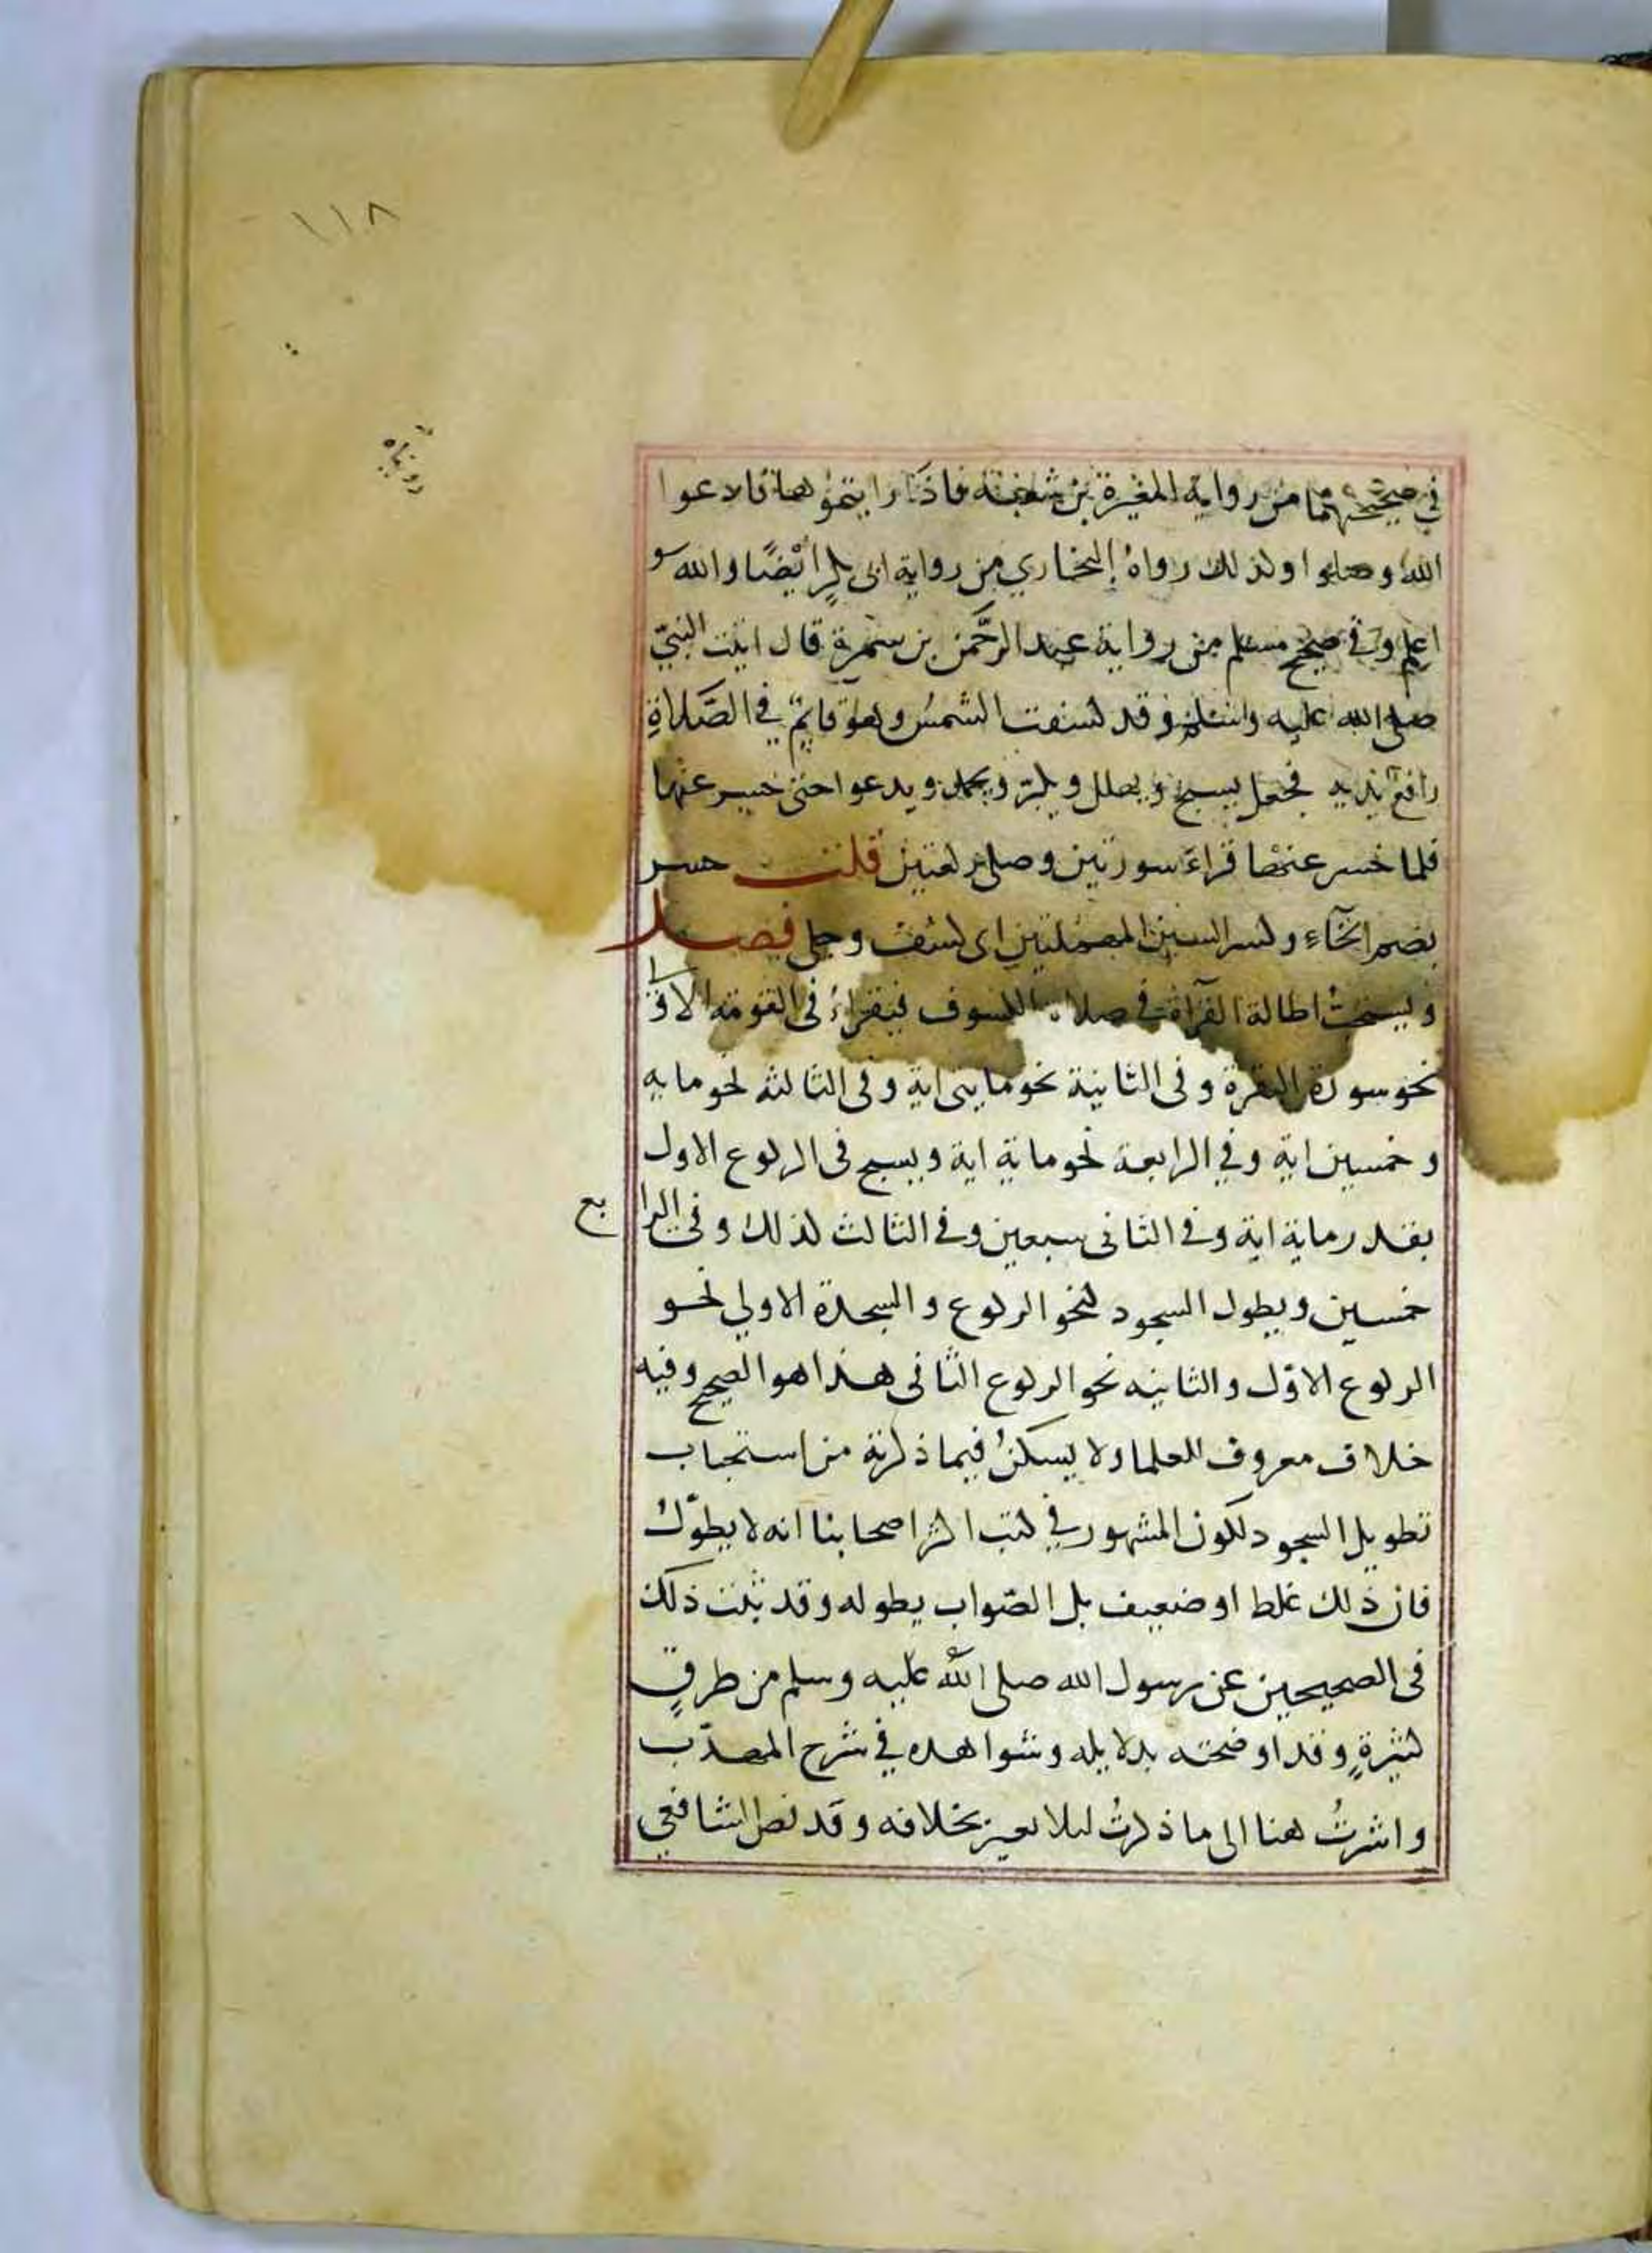 ١١٨
في صحيحيهما من رواية المغيرة بن شعبة فاذا رايتموها فادعوا
الله وصلوا وكذلك رواه البخاري من رواية ابى بكر ايضا والله
اعلم وفي صحيح مسلم من رواية عبد الرحمن بن سمرة قال اتيت النبي
صلى الله عليه وسلم وقد كسفت الشمس وهو قايم في الصلاة
رافع يديه فجعل يسبح ويهلل ويكبر ويحمد ويدعوا حتى حسر عنها
فلما حسر عنها قراء سورتين وصلى ركعتين قلت حسر
بضم الحآء وكسر السين المهملتين اى كشف وجلى فصل
ويستحب اطالة القرآة في صلاة الكسوف فيقراء فى القومة الاولى
نحو سورة البقرة وفى الثانية نحو مايتى اية وفى الثالثه نحو مايه
وخمسين اية وفي الرابعة نحو ماية اية ويسبح فى الركوع الاول
بقدر ماية اية وفي الثانى سبعين وفي الثالث كذلك وفى الرابع
خمسين ويطول السجود كنحو الركوع والسجدة الاولي نحو
الركوع الاول والثانيه نحو الركوع الثانى هذا هو الصحيح وفيه
خلاف معروف للعلما ولا يسكن فيما ذكرته من استحباب
تطويل السجود لكون المشهور في كتب اكثر اصحابنا انه لا يطول
فان ذلك غلط او ضعيف بل الصواب يطوله وقد ثبت ذلك
فى الصحيحين عن رسول الله صلى الله عليه وسلم من طرق
كثيرة وقد اوضحته بدلايله وشواهده في شرح المهذب
واشرت هنا الى ما ذكرت ليلا يعبر بخلافه وقد نص الشافعي